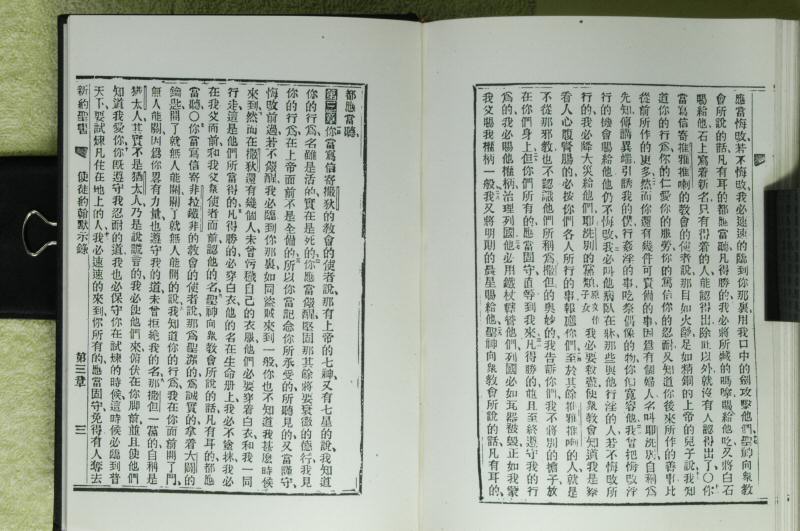 應當悔改若不悔改我必速速的臨到你那裏用我口中的劍攻擊他們聖神向衆教
會所說的話凡有耳的都應當聽凡得勝的我必將所藏的嗎嗱賜給他吃又將白石
賜給他石上寫着新名只有得着的人能認得出除此以外就沒有人認得出了○你
當寫信寄推雅推喇的教會的使者說那目如火𦦨足如精銅的上帝的兒子說我知
道你的行爲你的仁愛你的服勞你的篤信你的忍耐又知道你後來所作的善事比
從前所作的更多然而你還有幾件可責備的事因爲有個婦人名叫耶洗別自稱爲
先知傳講異端引誘我的僕行姦淫的事吃祭偶像的物你們寬容他我曾把悔改淫
行的機會賜給他他仍不悔改我必叫他病臥在牀那些與他行淫的人若不悔改所
行的我必降大災給他們耶洗別的黨類原文作子女我必要殺盡使衆教會知道我是察
看人心腹腎腸的必按你們各人所行的事報應你們至於其餘推雅推喇的人就是
不從那邪教也不認識他們所稱爲撒但的奧妙的我告訴你們我不將別的擔子放
在你們身上但你們所有的應當固守直等到我來凡得勝的他且至終遵守我的行
爲的我必賜他權柄治理列國他必用鐵杖轄管他們列國必如瓦器被毀正如我蒙
我父賜我權柄一般我又將明朝的晨星賜給他聖神向衆教會所說的話凡有耳的
都應當聽
第三章你當寫信寄撒狄的教會的使者說那有上帝的七神又有七星的說我知道
你的行爲名雖是活的實在是死的你應當儆醒堅固那其餘將要衰微的德行我見
你的行爲在上帝面前不是全備的所以你當記念你所承受的所聽見的又當謹守
悔改前過若不儆醒我必臨到你那裏如同盜賊來到一般你也不知道我甚麼時候
來到然而在撒狄還有幾個人未曾污穢自己的衣服他們必要穿着白衣和我一同
行走這是他們所當得的凡得勝的必穿白衣他的名在生命册上我必不塗抹我必
在我父面前和我父衆使者面前認他的名聖神向衆教會所說的話凡有耳的都應
當聽○你當寫信寄非拉鐵非的教會的使者說那爲聖潔的爲誠實的拿着大闢的
鑰匙開了就無人能關關了就無人能開的說我知道你的行爲我在你面前開了門
無人能關因爲你畧有力量也遵守我的道未曾拒絕我的名那撒但一黨的自稱是
猶太人其實不是猶太人乃是說謊言的我必使他們來俯伏在你脚前並且使他們
知道我愛你你既遵守我忍耐的道我也必保守你在試煉的時候這時候必臨到普
天下要試煉凡住在地上的人我必速速的來到你所有的應當固守免得有人奪去
新約聖書 使徒約翰默示錄 第三章 三